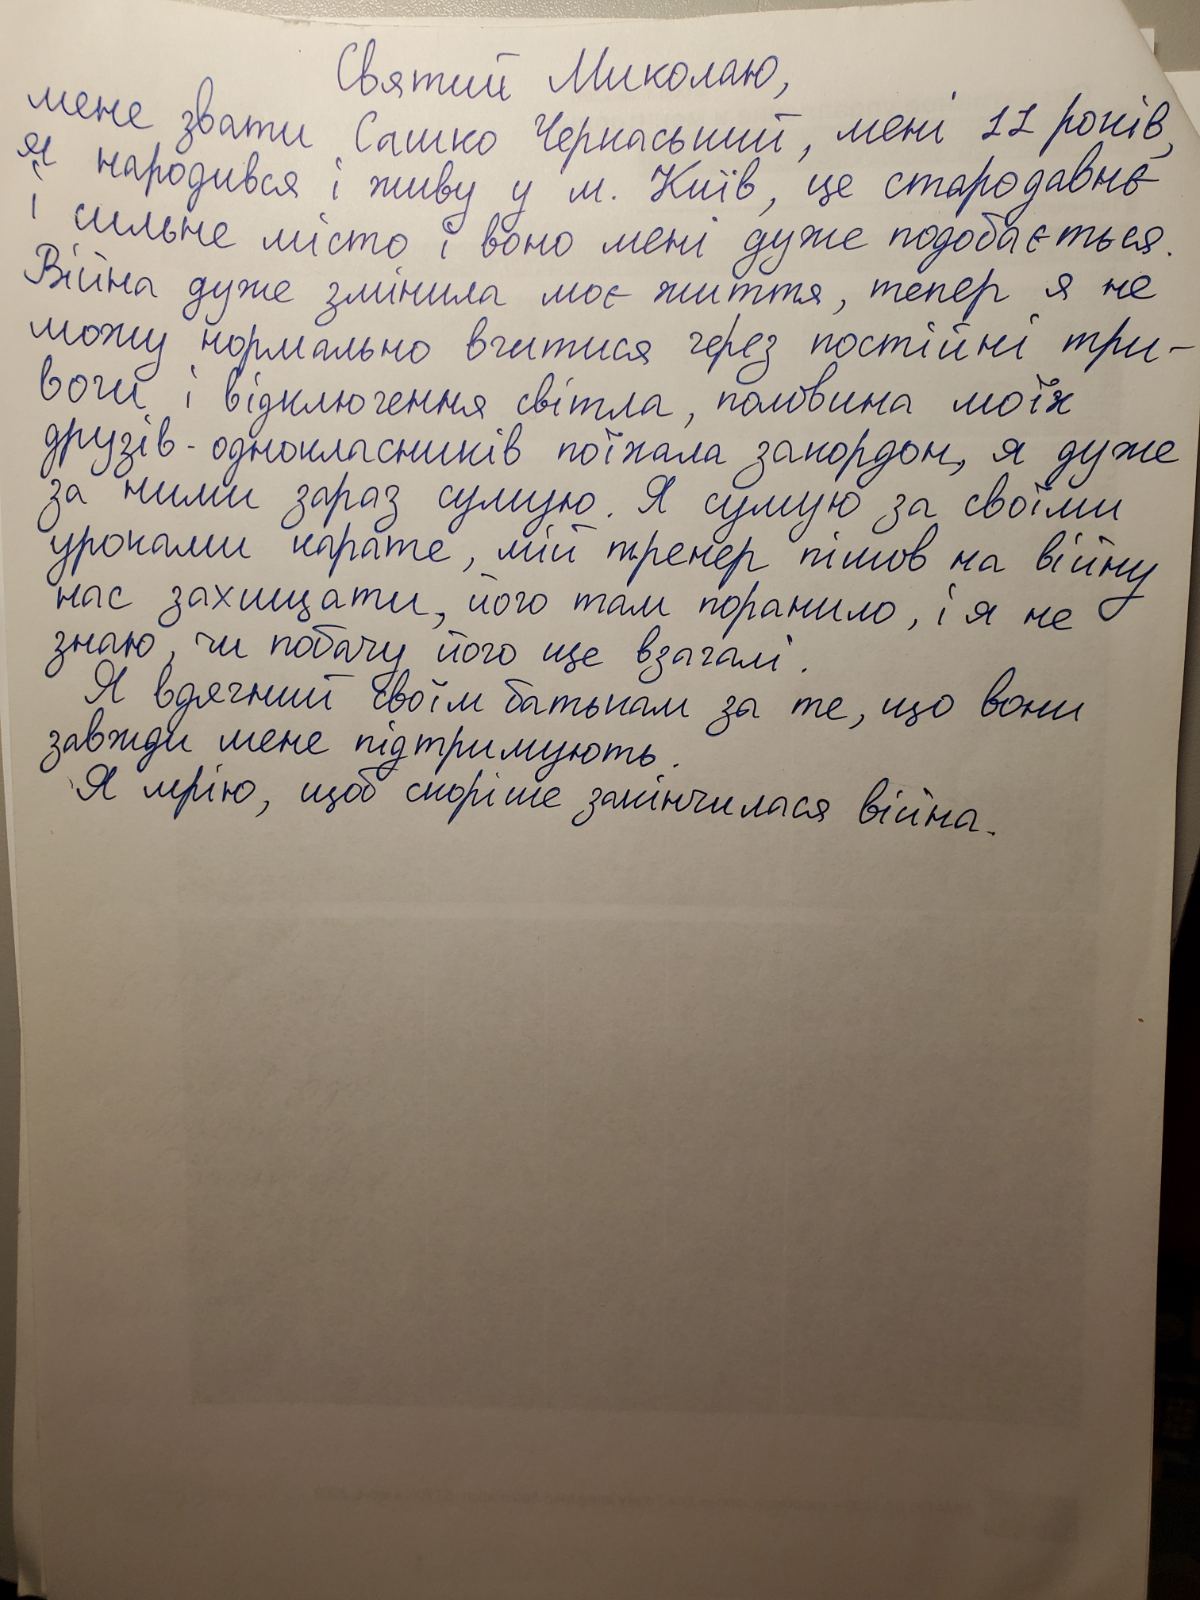 Святий Миколаю,
мене звати Сашко Черкаський, мені 11 років,
я народився і живу у м. Київ, це стародавнє
і сильне місто і воно мені дуже подобається.
Війна дуже змінила моє життя, тепер я не
можу нормально вчитися через постійні три-
воги і відключення світла, половина моїх
друзів-однокласників поїхала закордон, я дуже
за ними зараз сумую. Я сумую за своїми
уроками карате, мій тренер пішов на війну
нас захищати, його там поранило, і я не
знаю, чи побачу його ще взагалі.
Я вдячний своїм батькам за те, що вони
завжди мене підтримують.
Я мрію, щоб скоріше закінчилася війна.